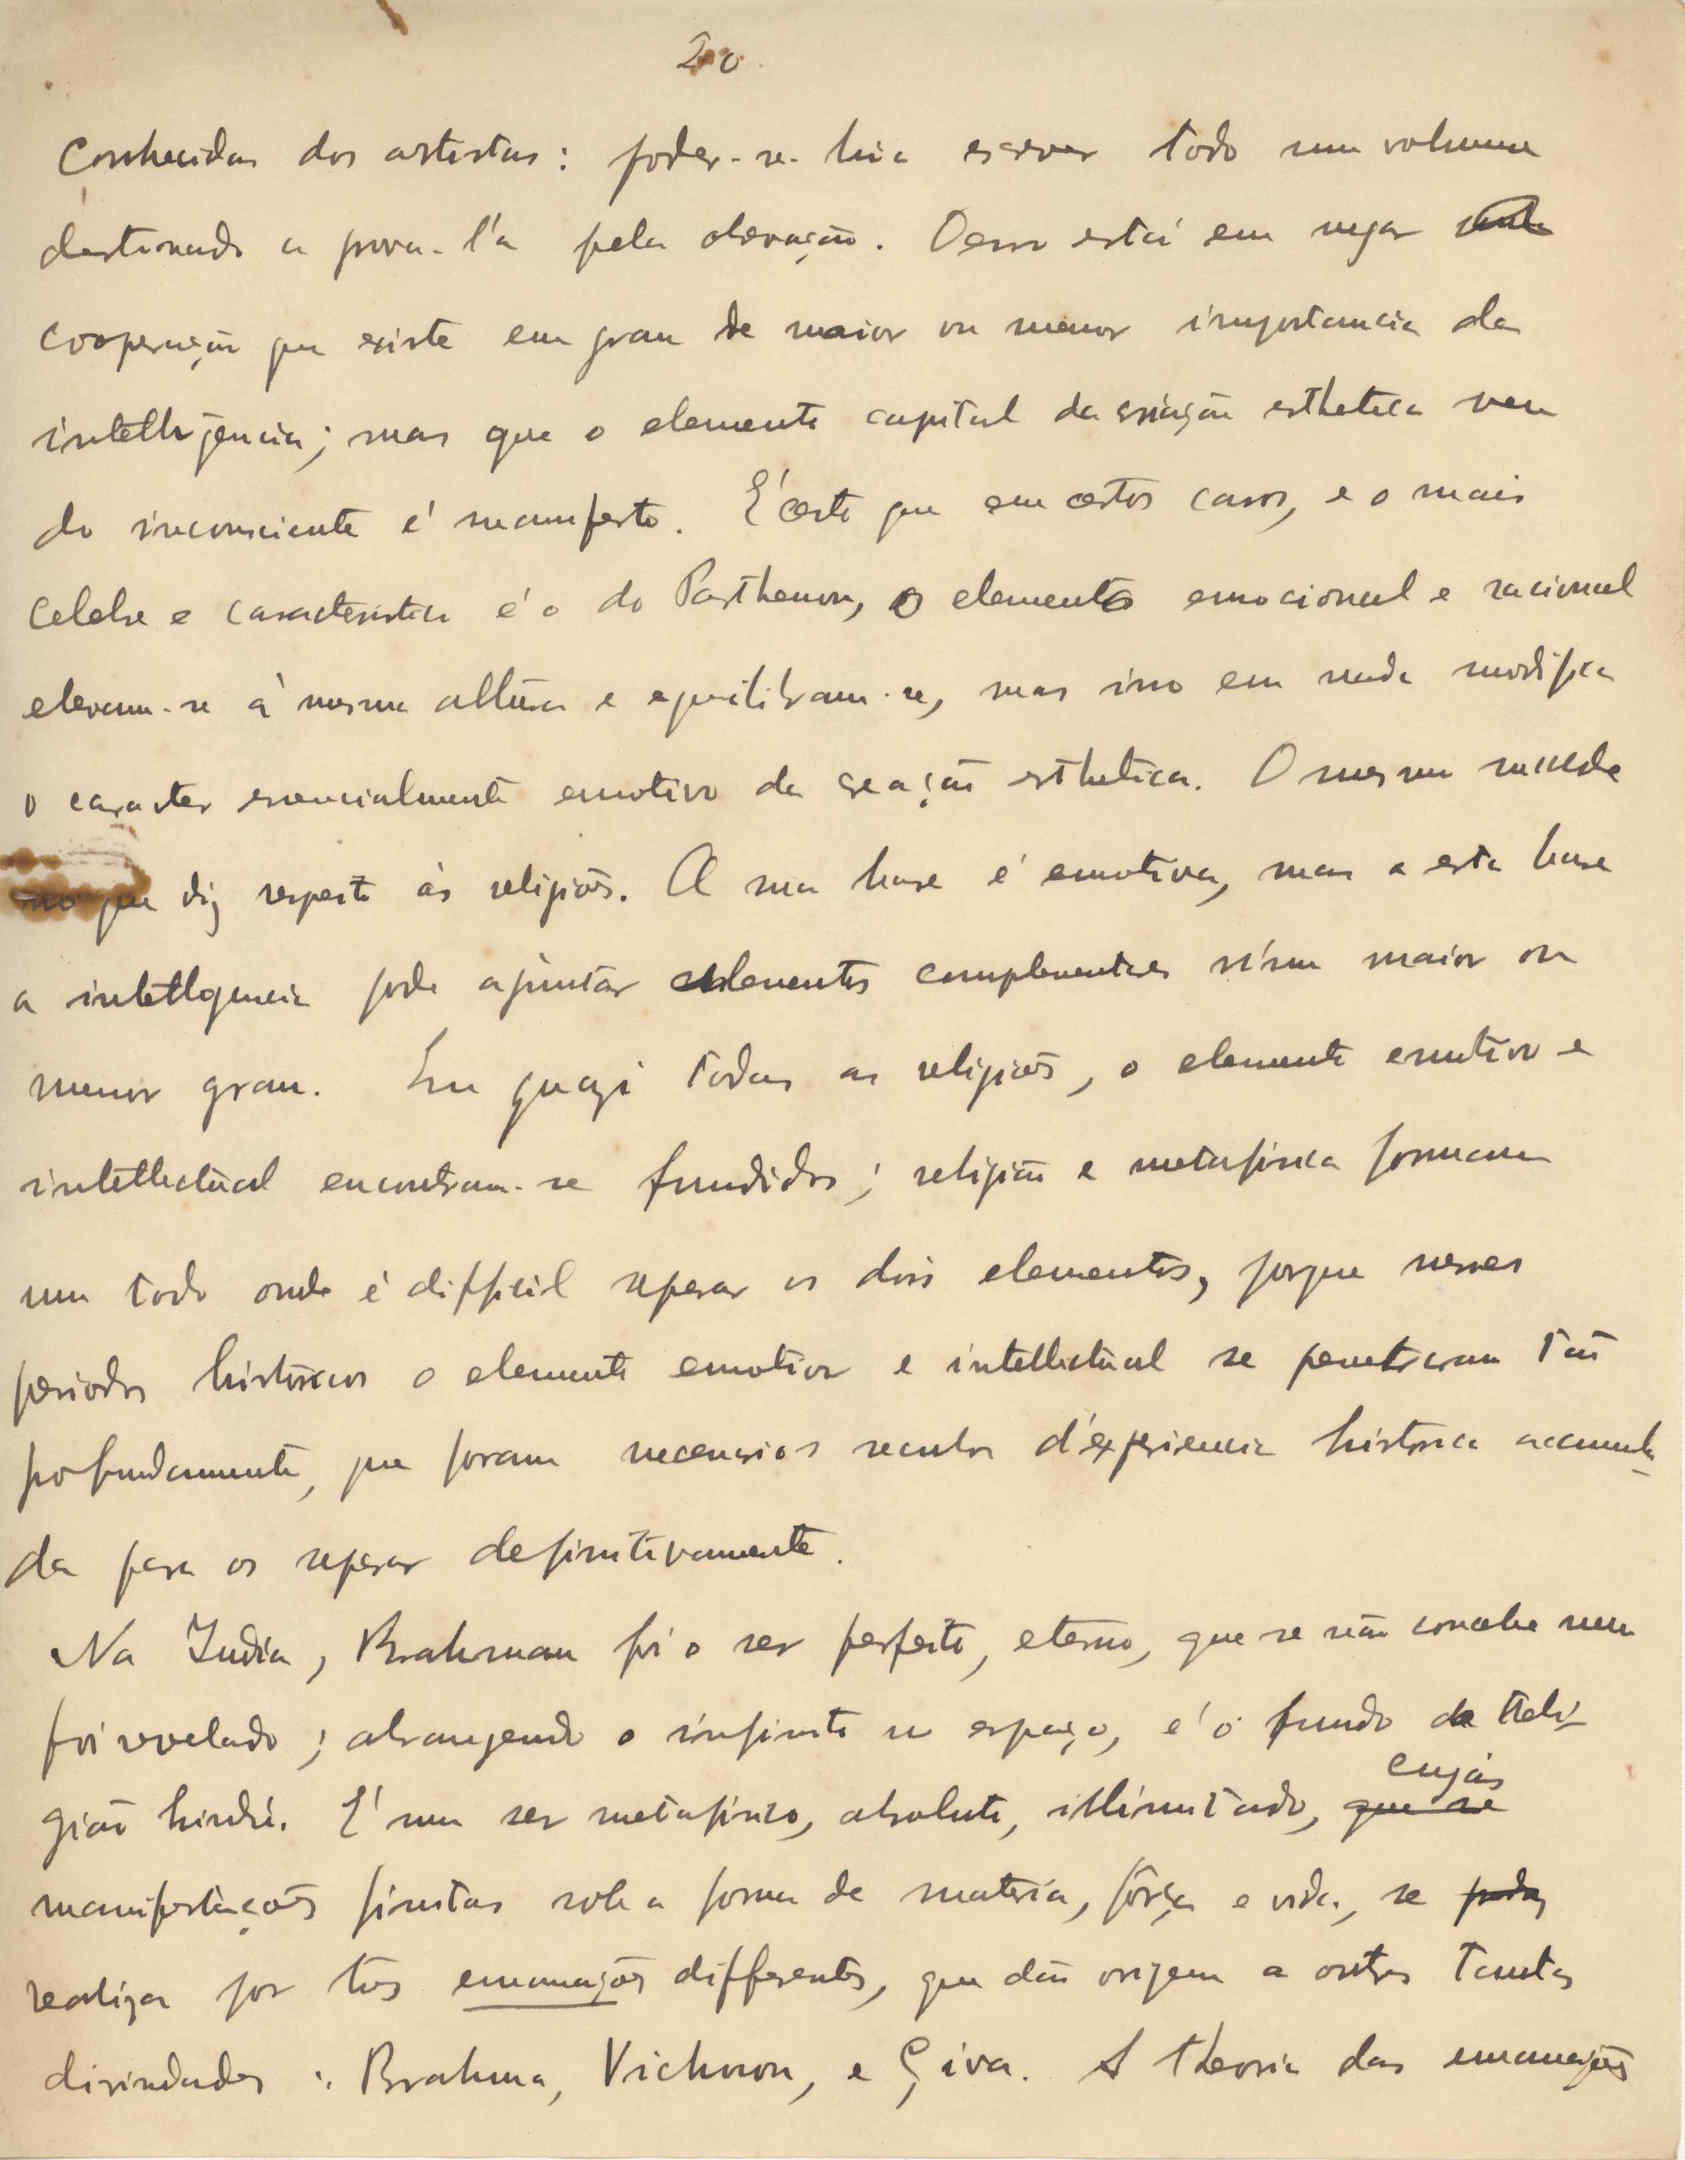 20
conhecidas dos artistas: poder-se-hia escrever todo um volume
destinado a prova-l'a pela observação. O erro está em negar
cooperação que existe em grau de maior ou menor importancia da
intelligencia; mas que o elemento capital da criação esthetica vem
do inconsciente é manifesto. É certo que em certos casos, e o mais
celebre e caracteristico é o do Parthenon, o elemento emocional e racional
elevam-se á mesma altura e equilibram-se, mas isso em nada modifica
o caracter essencialmente emotivo da creação esthetica. O mesmo succede
no que diz respeito ás religiões. A sua base é emotiva, mas a esta base
a intelligencia pode ajuntar elementos complementares n'um maior ou
menor grau. Em quazi todas as religiões, o elemento emotivo e
intellectual encontram-se fundidos; religião e metafisica formam
um todo onde é difficil separar os dois elementos, porque nesses
periodos historicos o elemento emotivo e intellectual se penetraram tão
profundamente, que foram necessarios seculos d'experiencia historica accumula-
da para os separar definitivamente.
Na India, Brahman foi o ser perfeito, eterno, que se não concebe nem
foi revelado; abrangendo o infinito no espaço, é o fundo da Reli-
gião hindú. É um ser metafisico, absoluto, illimitado, que se cujas
manifestações finitas sob a forma de materia, força e vida, se
realiza por tres emanações differentes, que dão origem a outras tantas
divindades: Brahma, Vichnou, e Çiva. A theoria das emanações